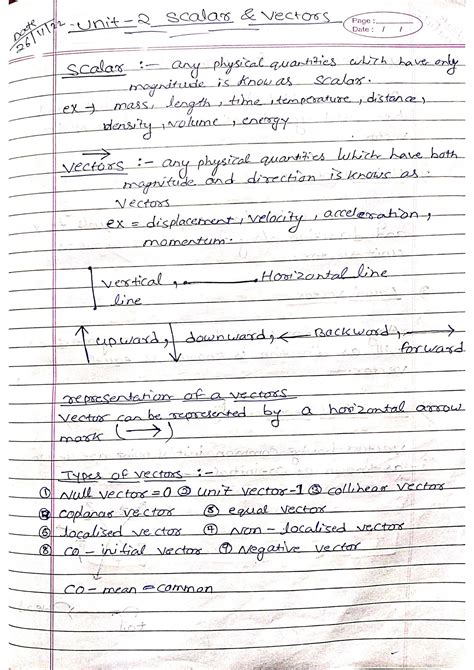 Date 26/11/22
Unit-2 Scalar & Vectors
Page :
Date : / /
Scalar :- any physical quantities which have only
magnitude is know as scalar.
ex → mass, length, time, temperature, distance,
density, volume, energy
Vectors :- any physical quantities which have both
magnitude and direction is knows as
Vectors
ex = displacement, velocity, acceleration,
momentum.
vertical line, Horizontal line
↑ upward, ↓ downward, ← Backward, → forward
representation of a vectors
Vector can be represented by a horizontal arrow
mark (→)
Types of vectors :-
① Null vector=0 ② unit vector-1 ③ collinear vector
④ coplanar vector ⑤ equal vector
⑥ localised vector ⑦ Non-localised vector
⑧ co-initial vector ⑨ Negative vector
co-mean = common